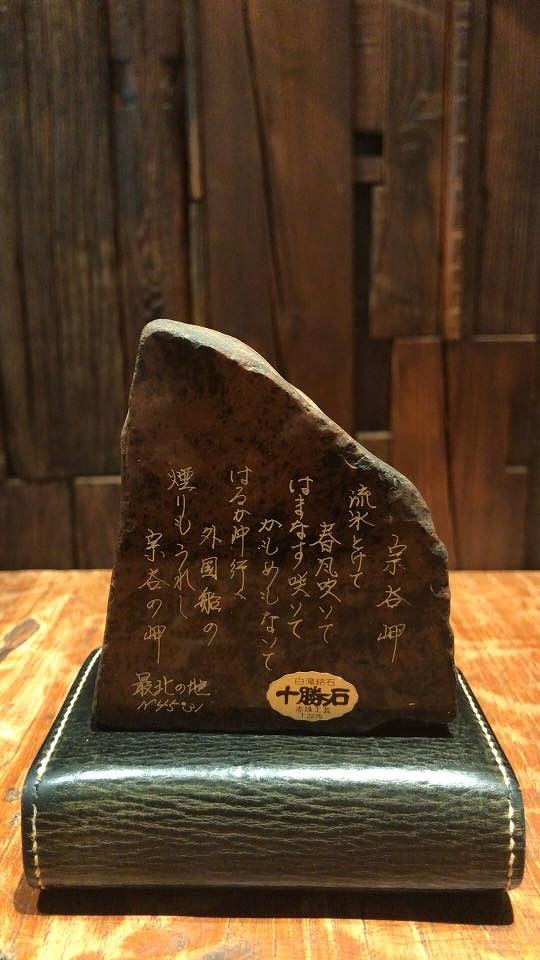 宗谷岬
流氷とけて
春風吹いて
はまなす咲いて
かもめもないて
はるか沖行く
外国船の
煙りもうれし
宗谷の岬
最北の地
N45°31′
白滝銘石
十勝石